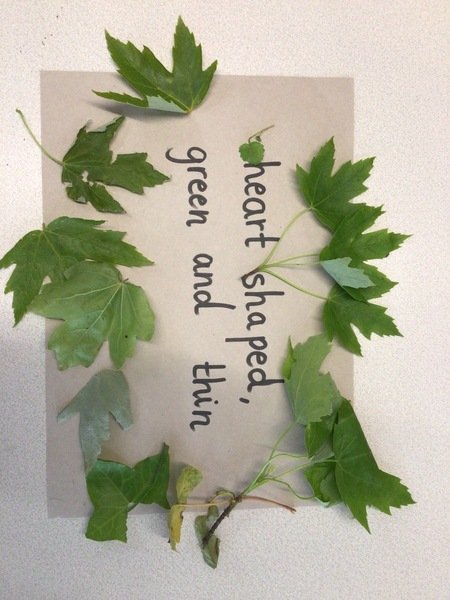 heart shaped,
green and thin